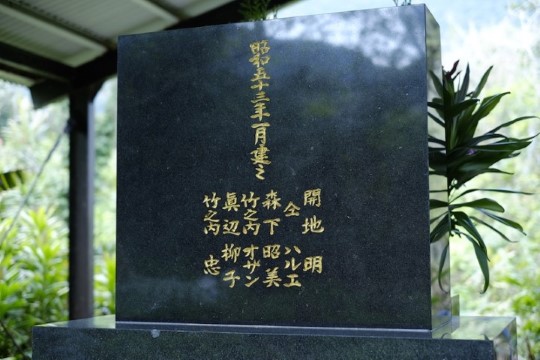 昭和五十三年一月建之
開地 明
仝 ハルエ
森下 昭美
竹之内 オザン
眞辺 柳子
竹之内 忠